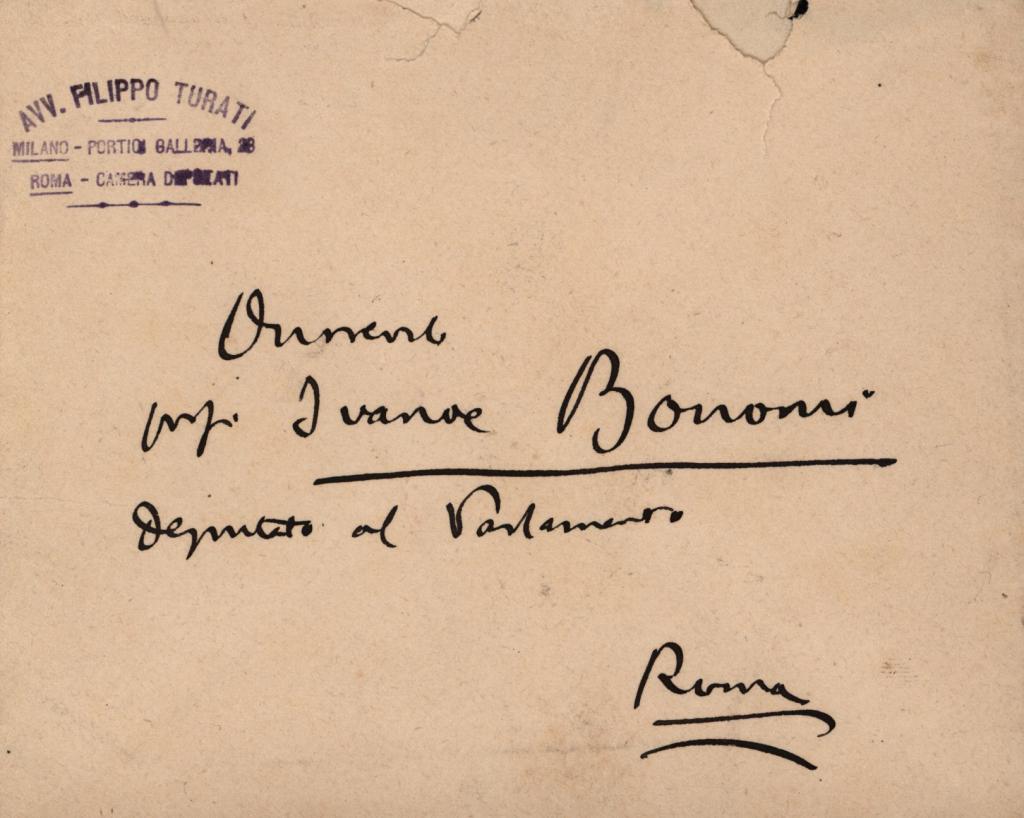 AVV. FILIPPO TURATI
MILANO - PORTICI GALLERIA, 23
ROMA - CAMERA DEPUTATI
prof. Ivanoe Bonomi
deputato al Parlamento
Roma